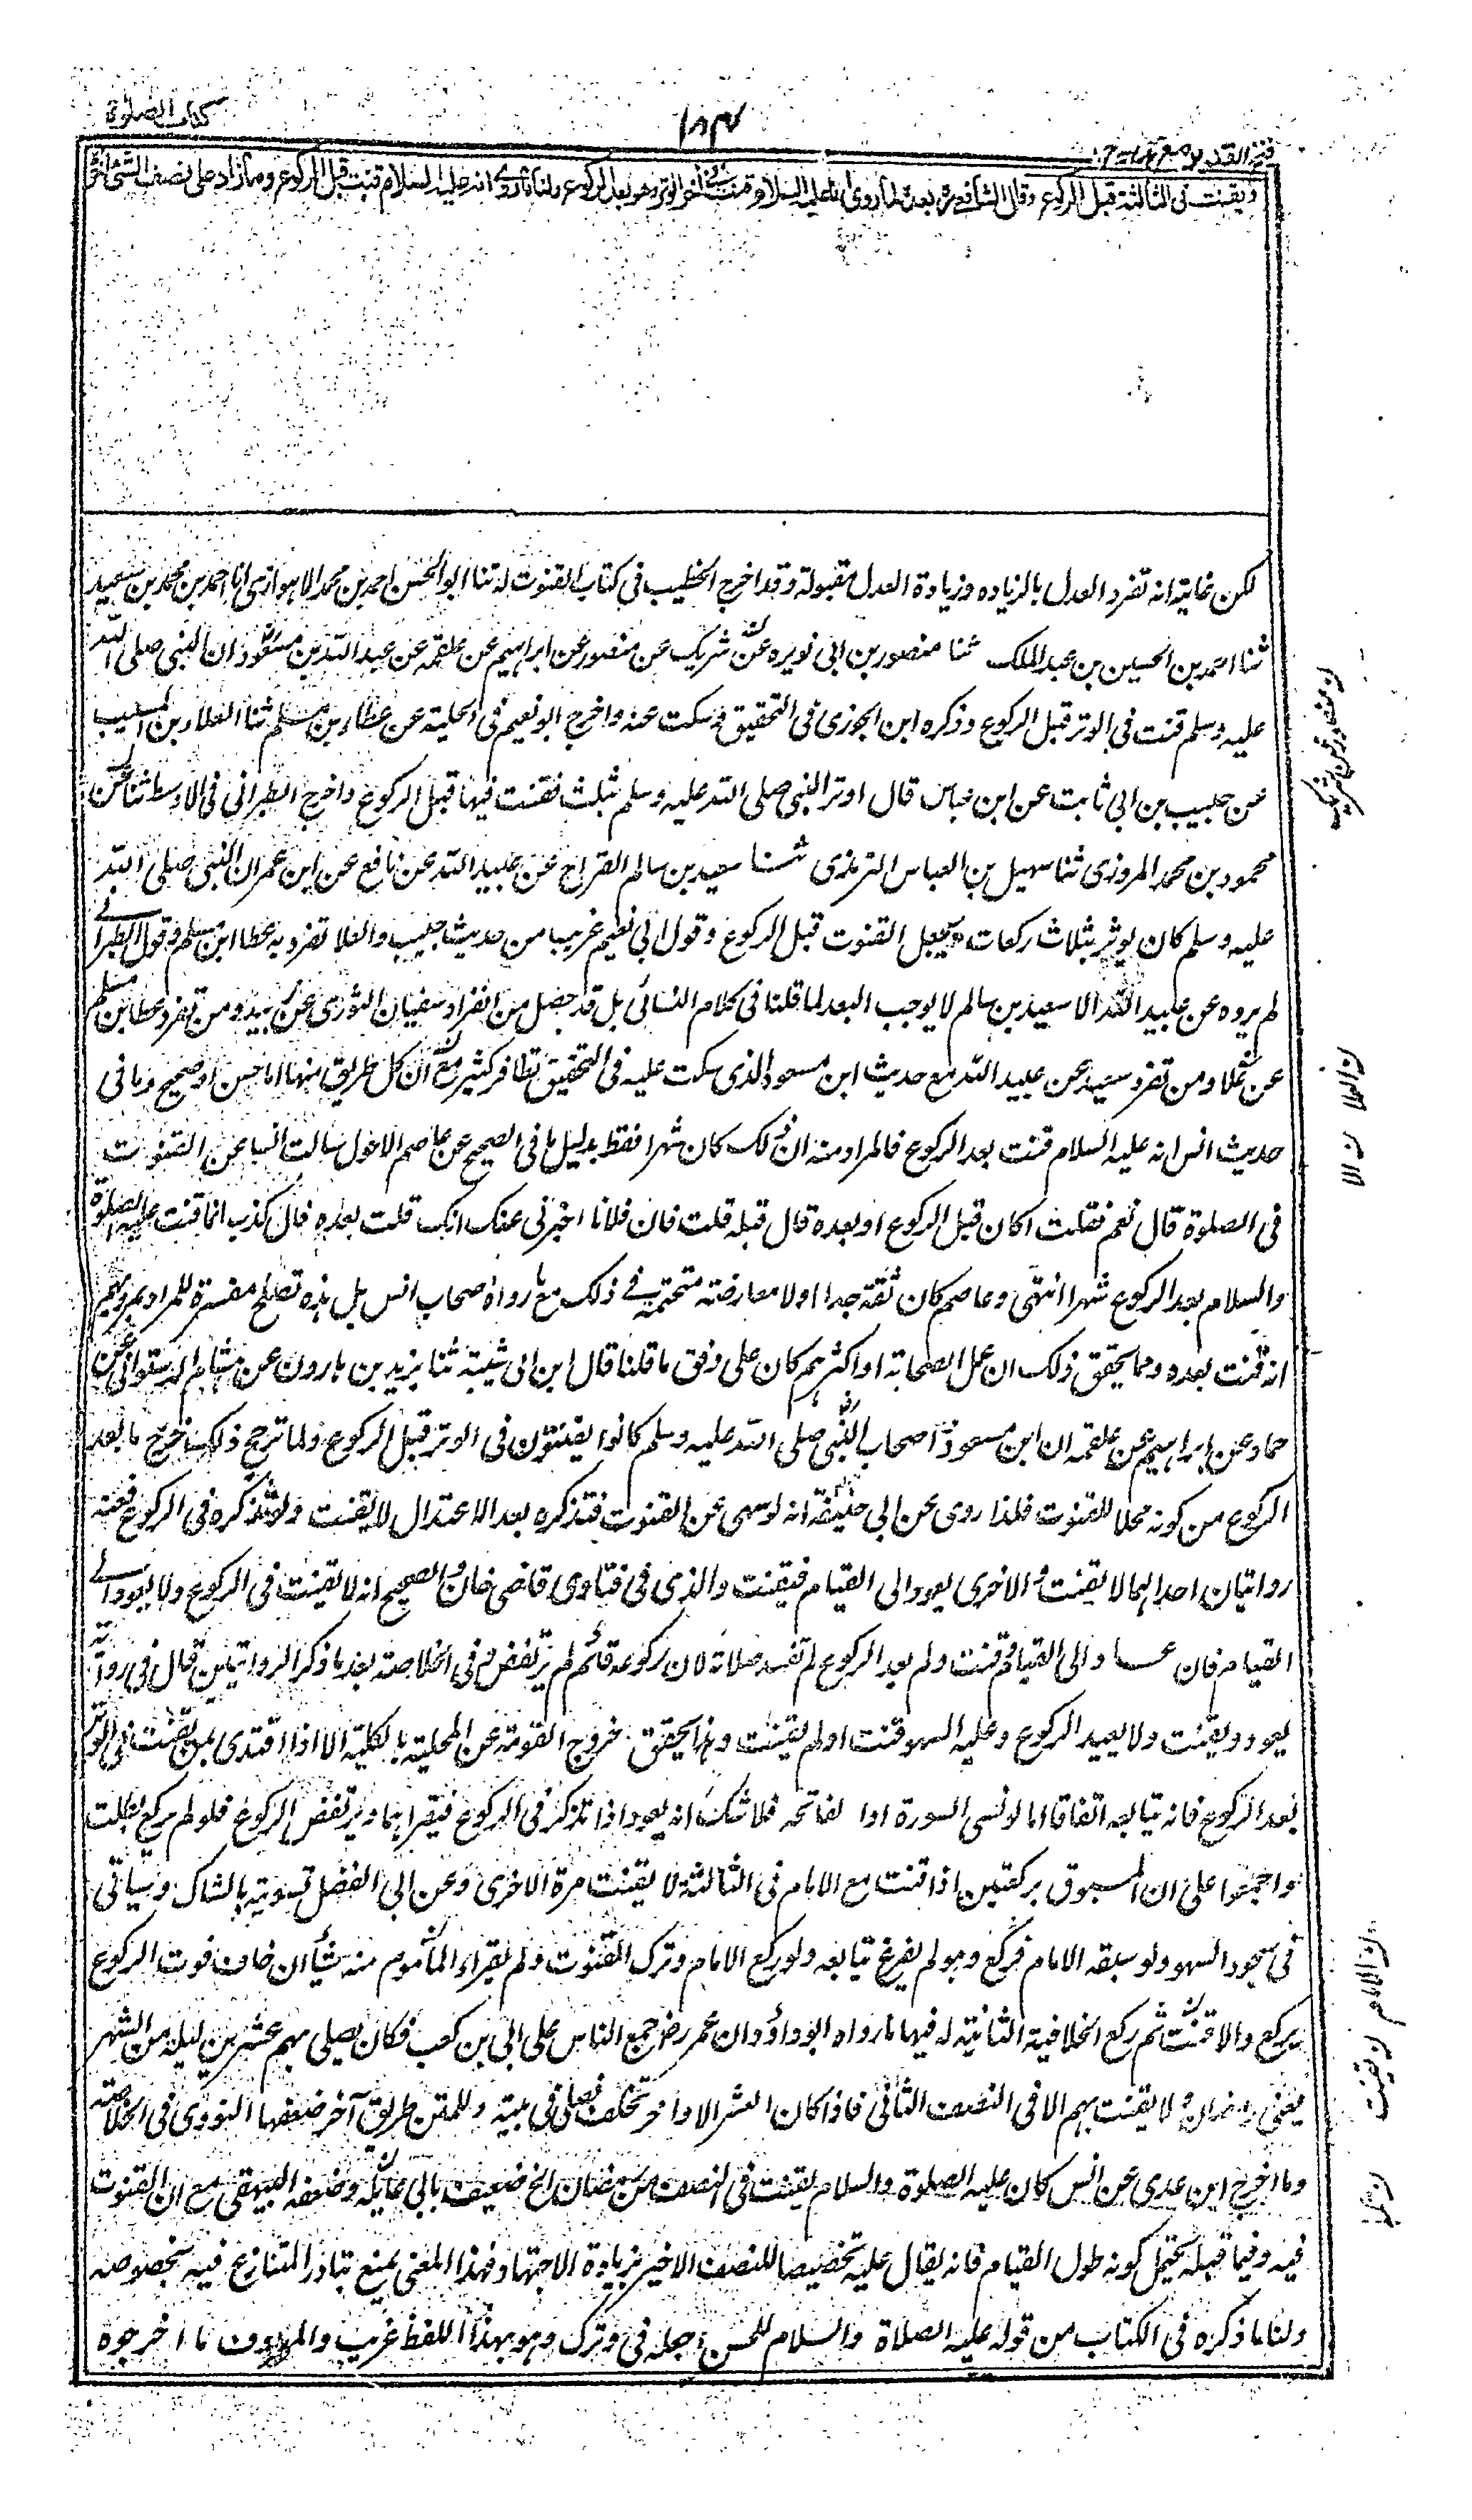 كتاب الصلوة
١٨٧
فتح القدير مع هداية ج ١
ويقنت في الثالثة قبل الركوع وقال الشافعي بعده لما روى انه عليه السلام قنت في آخر الوتر وهو بعد الركوع ولنا ما روى انه عليه السلام قنت قبل الركوع وما زاد على نصف الشئ آخره
لكن غايته انه تفرد العدل بالزياده وزيادة العدل مقبولة وقد اخرج الخطيب في كتاب القنوت له ثنا ابو الحسن احمد بن محمد الاهوازى انا احمد بن محمد بن سعيد
ثنا احمد بن الحسين بن عبد الملك ثنا منصور بن ابى نويره عن شريك عن منصور عن ابراهيم عن علقمه عن عبد الله بن مسعود ان النبى صلى الله
عليه وسلم قنت فى الوتر قبل الركوع وذكره ابن الجوزى فى التحقيق وسكت عنه واخرج ابو نعيم فى الحلية عن عطاء بن مسلم ثنا العلاء بن المسيب
عن حبيب بن ابى ثابت عن ابن عباس قال اوتر النبى صلى الله عليه وسلم بثلث فقنت فيها قبل الركوع واخرج الطبرانى فى الاوسط ثنا
محمود بن محمد المروزى ثنا سهيل بن العباس الترمذى ثنا سعيد بن سالم القداح عن عبيد الله عن نافع عن ابن عمر ان النبى صلى الله
عليه وسلم كان يوتر بثلاث ركعات ويجعل القنوت قبل الركوع وقول ابى نعيم غريب من حديث حبيب والعلا تفرد به عطا ابن مسلم وقول الطبرانى
لم يروه عن عبيد الله الا سعيد بن سالم لا يوجب البعد لما قلنا فى كلام النسائى بل قد حصل من انفراد سفيان الثورى عن زبيد ومن تفرد عطا بن مسلم
عن علا ومن تفرد سعيد عن عبيد الله مع حديث ابن مسعود الذى سكت عليه فى التحقيق تظافر كثير مع ان كل طريق منها اما حسن او صحيح وما فى
حديث انس انه عليه السلام قنت بعد الركوع فالمراد منه ان ذلك كان شهرا فقط بدليل ما فى الصحيح عن عاصم الاحول سالت انسا عن القنوت
فى الصلوة قال نعم فقلت اكان قبل الركوع او بعده قال قبله قلت فان فلانا اخبرنى عنك انك قلت بعده قال كذب انما قنت عليه الصلوة
والسلام بعد الركوع شهرا انتهى وعاصم كان ثقة جدا اولا معارضة متحتمة فى ذلك مع ما رواه اصحاب انس بل هذه تصلح مفسرة للمراد بمرويهم
انه قنت بعده ومما يحقق ذلك ان عمل الصحابة او اكثرهم كان على وفق ما قلنا قال ابن ابى شيبة ثنا يزيد بن هارون عن هشام الدستوائى عن
حماد عن ابراهيم عن علقمه ان ابن مسعود واصحاب النبى صلى الله عليه وسلم كانوا يقنتون فى الوتر قبل الركوع ولما ترجح ذلك خرج ما بعد
الركوع من كونه محلا للقنوت فلذا روى عن ابى حنيفة انه لو سهى عن القنوت فتذكره بعد الاعتدال لا يقنت ولو تذكره فى الركوع فعنه
روايتان احداهما لا يقنت والاخرى يعود الى القيام فيقنت والذى فى فتاوى قاضى خان والصحيح انه لا يقنت فى الركوع ولا يعود الى
القيام فان عاد الى القيام وقنت ولم يعد الركوع لم تفسد صلاته لان ركوعه قائم لم يرتفض وفى الخلاصة بعد ما ذكر الروايتين قال فى رواية
يعود ويقنت ولا يعيد الركوع وعليه السهو قنت او لم يقنت وهذا يحقق خروج القومة عن المحلية بالكلية الا اذا اقتدى بمن يقنت فى الوتر
بعد الركوع فانه يتابعه اتفاقا اما لو نسى السورة او الفاتحه فلا شك انه يعود اذا تذكر فى الركوع فيقرا بها ويرتفض الركوع فلو لم يركع بطلت
واجمعوا على ان المسبوق بركعتين اذا قنت مع الامام فى الثالثة لا يقنت مرة الاخرى وعن ابى الفضل تسويته بالشاك وسياتى
فى سجود السهو ولو سبقه الامام فركع وهو لم يفرغ يتابعه ولو ركع الامام وترك القنوت ولم يقراء المأموم منه شيأ ان خاف فوت الركوع
يركع والا قنت ثم ركع الخلافية الثانية له فيها ما رواه ابو داؤد ان عمر رض جمع الناس على ابى بن كعب فكان يصلى بهم عشرين ليلة من الشهر
يعنى رمضان ولا يقنت بهم الا فى النصف الثانى فاذا كان العشر الاواخر تخلف فصلى فى بيته وللمتن طريق آخر ضعفها النووى فى الخلاصة
وما اخرج ابن عدى عن انس كان عليه الصلوة والسلام يقنت فى النصف من رمضان الخ ضعيف بابى عاتكة وضعفه البيهقى مع ان القنوت
فيه وفيما قبله يحتمل كونه طول القيام فانه يقال عليه تخصيصا للنصف الاخير بزيادة الاجتهاد فهذا المعنى يمنع تبادر المتنازع فيه بخصوصه
ولنا ما ذكره فى الكتاب من قوله عليه الصلاة والسلام للحسن اجعله فى وترك وهو بهذا اللفظ غريب والمعروف ما اخرجوه